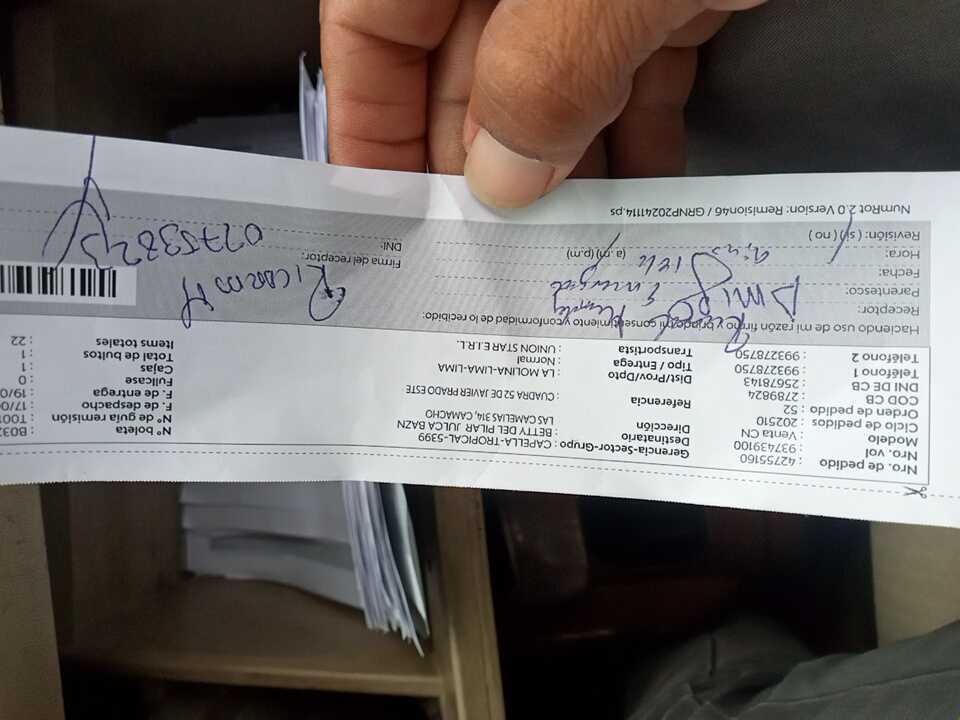 Nro. de pedido : 42755160
Nro. vol : 937439100
Modelo : Venta CN
Ciclo de pedidos : 202510
Orden de pedido : 52
COD CB : 2789824
DNI DE CB : 25678143
Teléfono 1 : 993278750
Teléfono 2 : 993278750
Gerencia-Sector-Grupo : CAPELLA-TROPICAL-5399
Destinatario : BETTY DEL PILAR JULCA BAZN
Dirección : LAS CAMELIAS 314, CAMACHO
Referencia : CUADRA 52 DE JAVIER PRADO ESTE
Dist/Prov/Dpto : LA MOLINA-LIMA-LIMA
Tipo / Entrega : Normal
Transportista : UNION STAR E.I.R.L.
Nº boleta : B032
Nº guía de remisión : T001
F. de despacho : 17/0
F. de entrega : 19/0
Fullcase : 0
Cajas : 1
Total de bultos : 1
Items totales : 22
Haciendo uso de mi razón firmo y brindo mi consentimiento y conformidad de lo recibido:
Receptor:
Parentesco:
Fecha:
Hora: (a .m) (p.m)
Revisión: ( si ) ( no )
Firma del receptor: Ricardo H
DNI: 02753825
NumRot 2.0 Version: Remision46 / GRNP20241114.ps